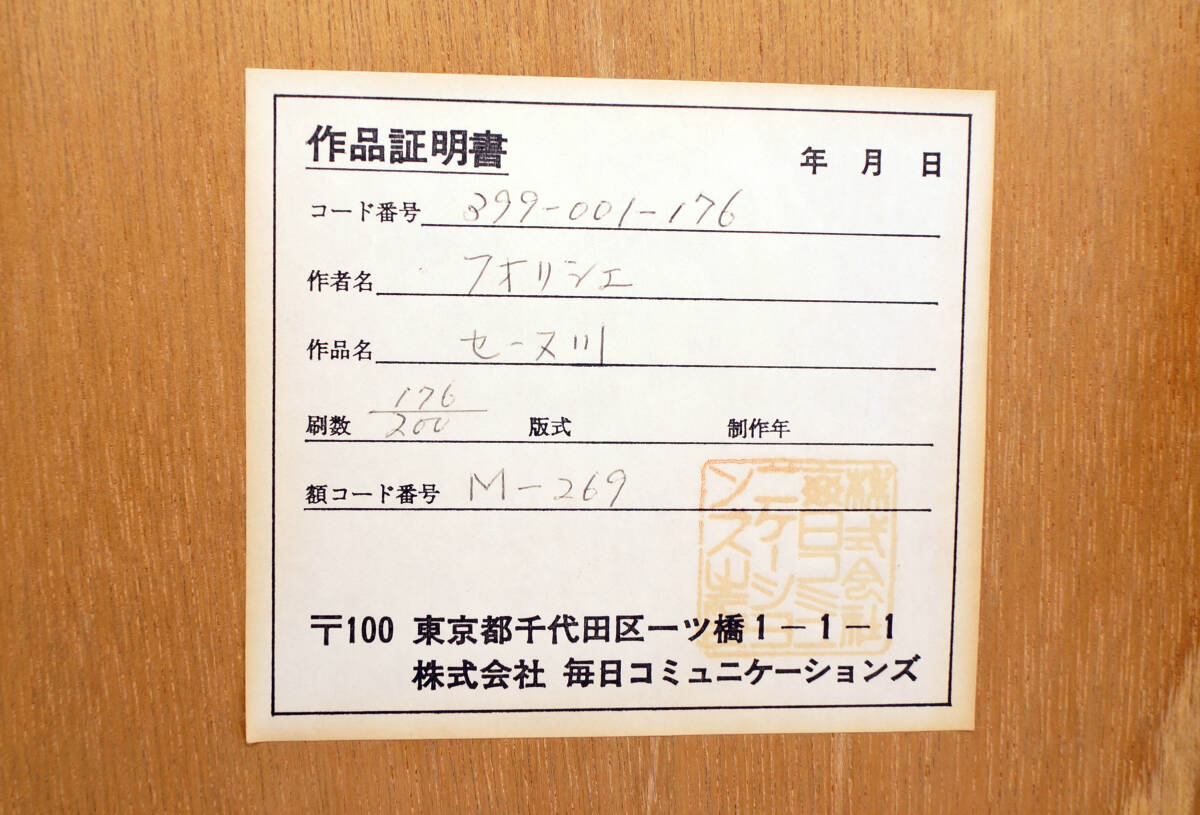 作品証明書
年 月 日
コード番号 399-001-176
作者名 フォリシェ
作品名 セーヌ川
刷数 176/200 版式 制作年
額コード番号 M-269
〒100 東京都千代田区一ツ橋1-1-1
株式会社 毎日コミュニケーションズ